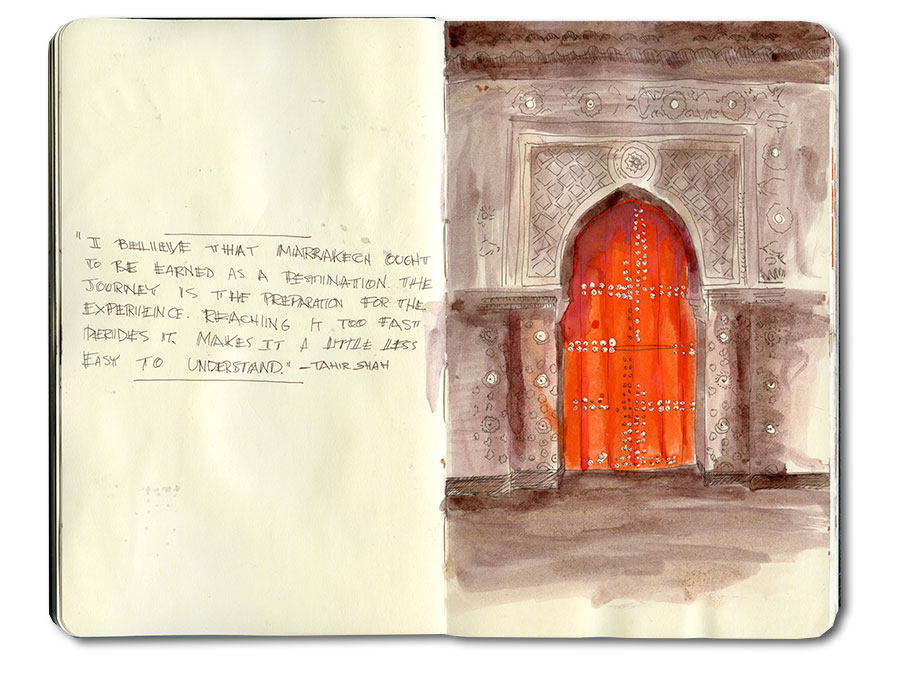 "I BELIEVE THAT MARRAKECH OUGHT
TO BE EARNED AS A DESTINATION. THE
JOURNEY IS THE PREPARATION FOR THE
EXPERIENCE. REACHING IT TOO FAST
DERIDES IT. MAKES IT A LITTLE LESS
EASY TO UNDERSTAND." – TAHIR SHAH